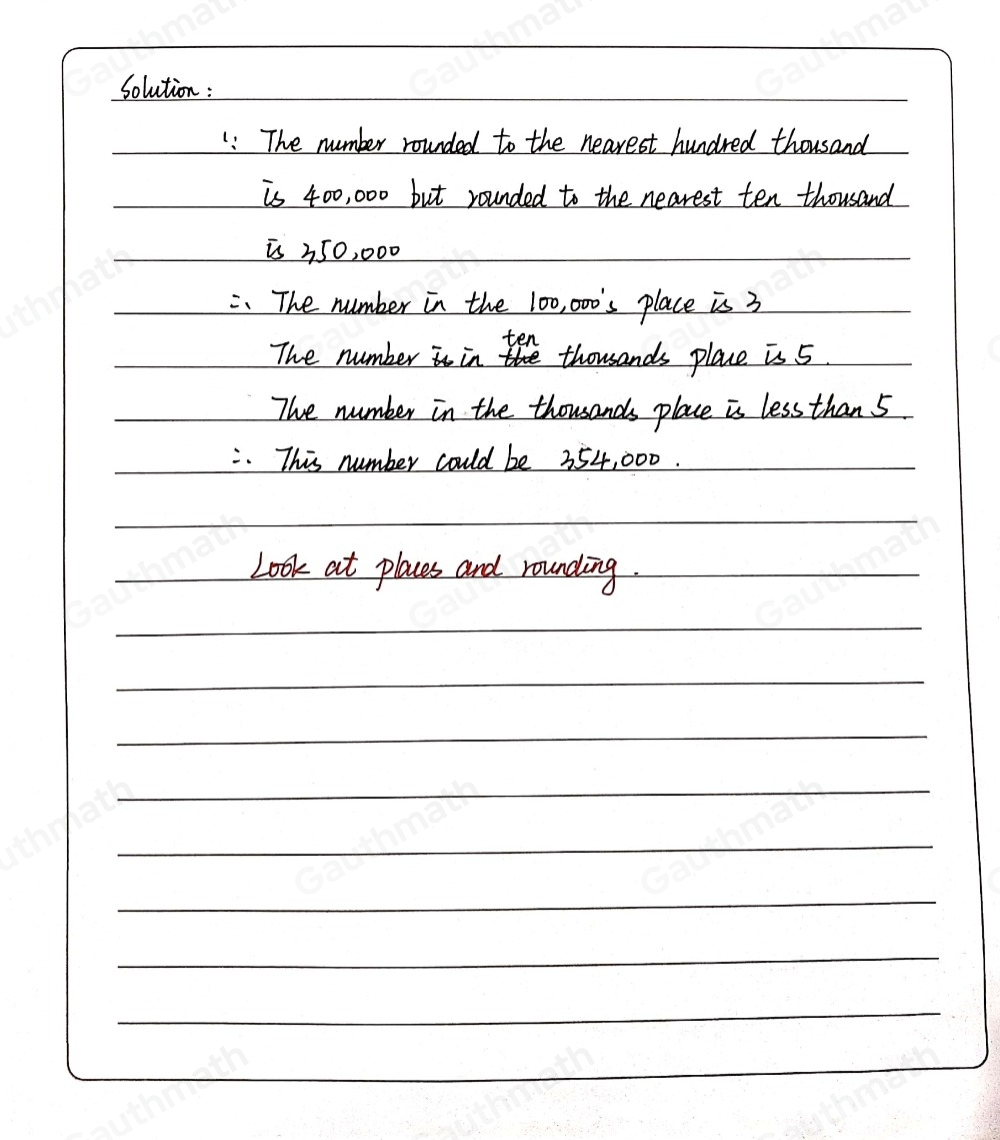 Solution:
∵ The number rounded to the nearest hundred thousand
is 400,000 but rounded to the nearest ten thousand
is 350,000
∴ The number in the 100,000's place is 3
The number is in the ten thousands place is 5.
The number in the thousands place is less than 5.
∴ This number could be 354,000.
Look at places and rounding.
Gauthmath